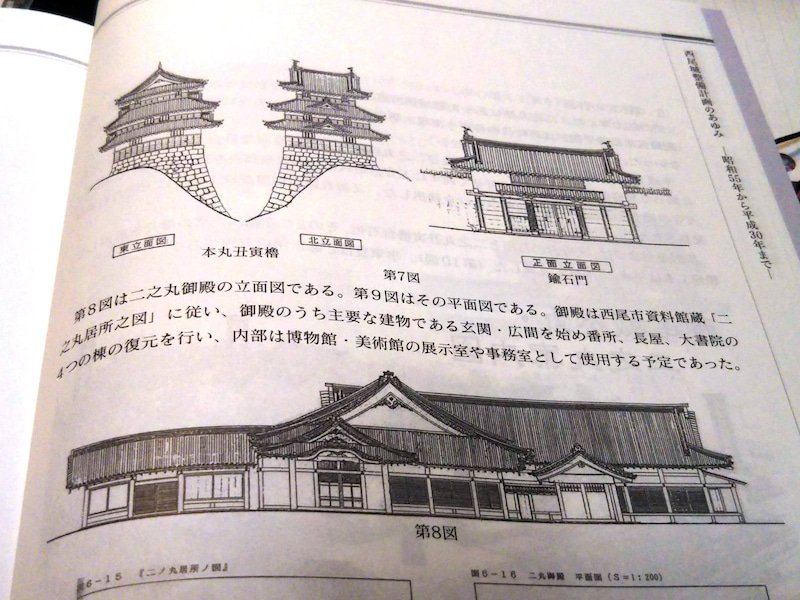 西尾城整備計画のあゆみ ―昭和55年から平成30年まで―
東立面図
北立面図
本丸丑寅櫓
正面立面図
鍮石門
第7図
第8図は二之丸御殿の立面図である。第9図はその平面図である。御殿は西尾市資料館蔵「二
之丸居所之図」に従い、御殿のうち主要な建物である玄関・広間を始め番所、長屋、大書院の
4つの棟の復元を行い、内部は博物館・美術館の展示室や事務室として使用する予定であった。
第8図
図6-15 『二ノ丸居所ノ図』
図6-16 二丸御殿 平面図(S=1:200)